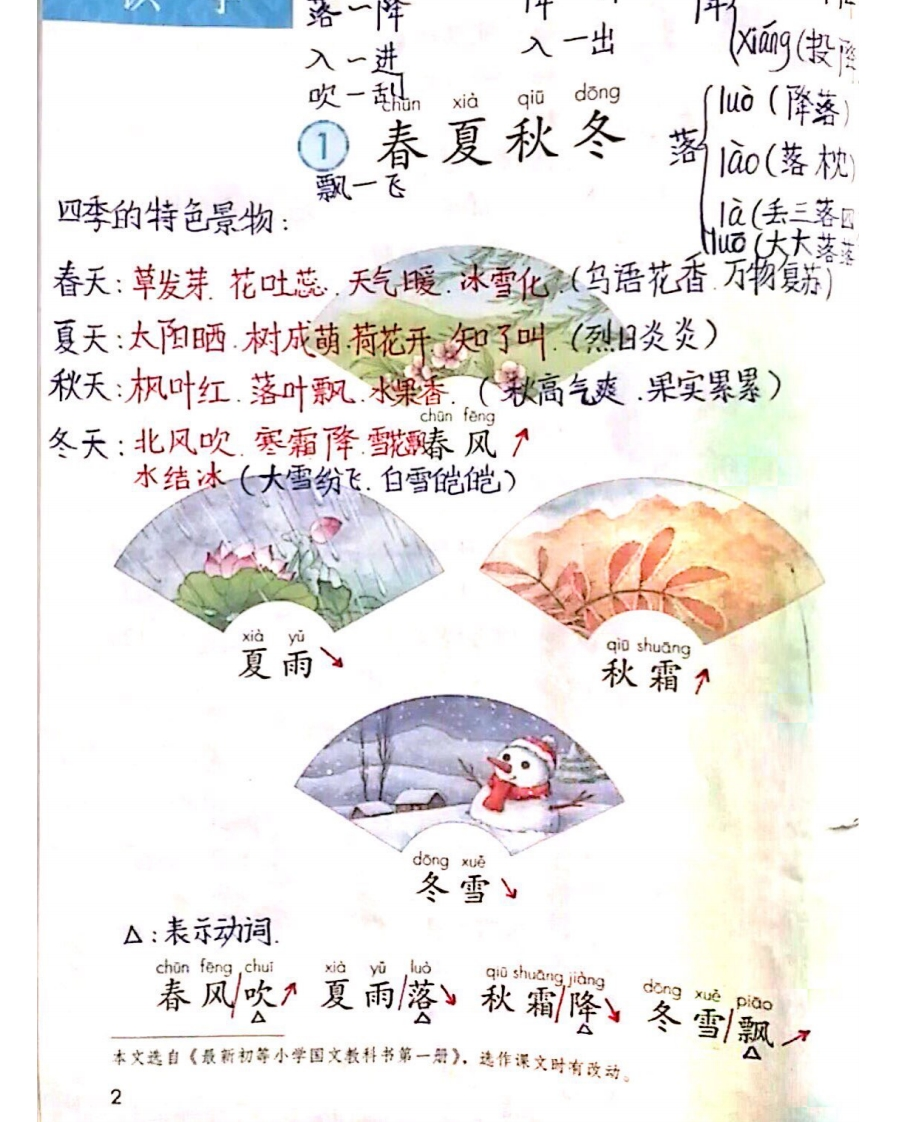 识 字
落-降
入-进 入-出 xiáng(投降
吹-乱 luò(降落)
chūn xià qiū dōng
1 春夏秋冬 落 lào(落枕)
飘-飞
四季的特色景物: là(丢三落四
luō(大大落落
春天:草发芽.花吐蕊.天气暖.冰雪化.(鸟语花香.万物复苏)
夏天:太阳晒.树成萌.荷花开.知了叫.(烈日炎炎)
秋天:枫叶红.落叶飘.水果香.(秋高气爽.果实累累)
chūn fēng
冬天:北风吹.寒霜降.雪花飘 春风↗
水结冰(大雪纷飞.白雪皑皑)
xià yǔ
夏雨↘
qiū shuāng
秋霜↗
dōng xuě
冬雪↘
△:表示动词.
chūn fēng chuī xià yǔ luò qiū shuāng jiàng dōng xuě piāo
春风/吹↗ 夏雨/落↘ 秋霜/降↘ 冬雪/飘↗
△ △ △ △
本文选自《最新初等小学国文教科书第一册》,选作课文时有改动。
2